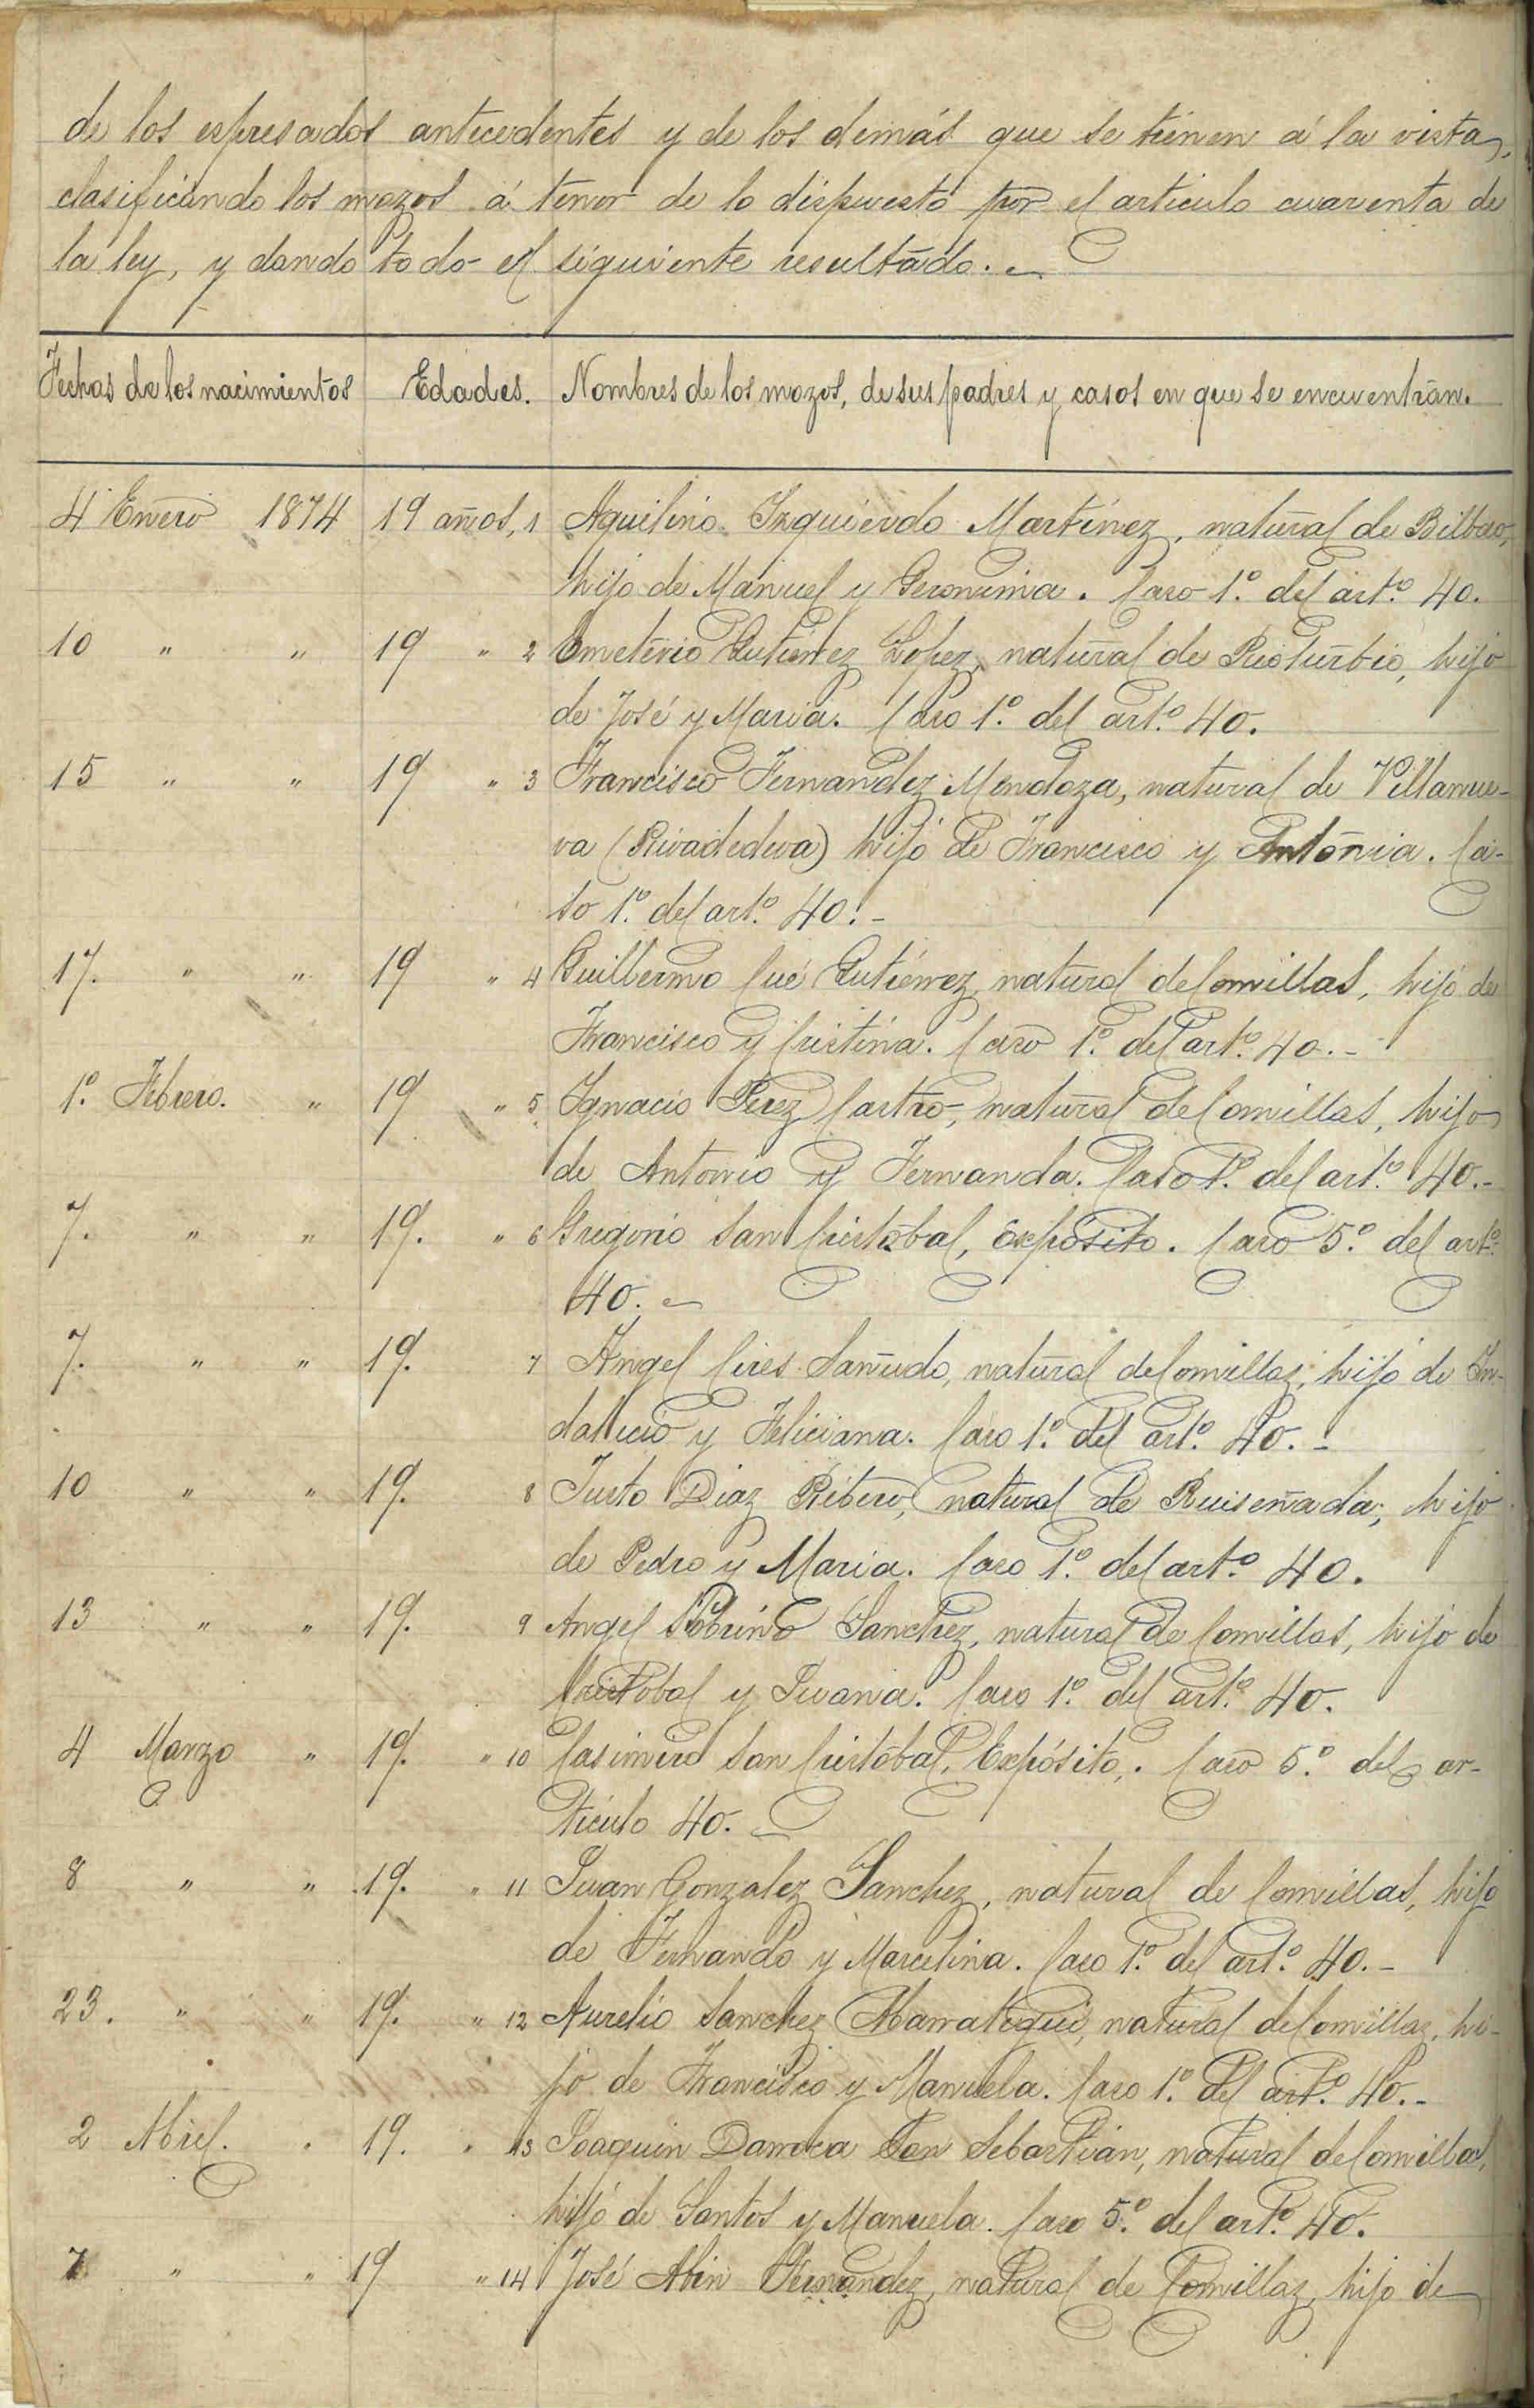 de los espresados antecedentes y de los demás que se tienen á la vista,
clasificando los mozos á tenor de lo dispuesto por el articulo cuarenta de
la ley, y dando todo el siguiente resultado.
Fechas de los nacimientos Edades. Nombres de los mozos, de sus padres y casos en que se encuentran.
4 Enero 1874 19 años, 1 Aquilino Izquierdo Martínez, natural de Bilbao,
hijo de Manuel y Geronima. Caso 1.º del art.º 40.
10 " " 19 " 2 Emeterio Gutierrez Lopez, natural de Rioturbio, hijo
de José y Maria. Caso 1.º del art.º 40.
15 " " 19 " 3 Francisco Fernandez Mendoza, natural de Villanue-
va (Rivadedeva) hijo de Francisco y Antonia. Ca-
so 1.º del art.º 40.-
17. " " 19 " 4 Guillermo Cué Gutiérrez, natural de Comillas, hijo de
Francisco y Cristina. Caso 1.º del art.º 40.-
1.º Febrero. " 19 " 5 Ignacio Pérez Castro, natural de Comillas, hijo
de Antonio y Fernanda. Caso 1.º del art.º 40.-
7. " " 19. " 6 Gregorio San Cristobal, Expósito. Caso 5.º del art.º
40.
7. " " 19. 7 Angel Cires Sañudo, natural de Comillas, hijo de In-
dalecio y Feliciana. Caso 1.º del art.º 40.-
10 " " 19. 8 Justo Diaz Ribero, natural de Ruiseñada, hijo
de Pedro y Maria. Caso 1.º del art.º 40.
13 " " 19. 9 Angel Sobrino Sanchez, natural de Comillas, hijo de
Cristobal y Juana. Caso 1.º del art.º 40.
4 Marzo " 19. " 10 Casimiro San Cristóbal, Expósito. Caso 5.º del ar-
tículo 40.
8 " " 19. " 11 Juan Gonzalez Sanchez, natural de Comillas, hijo
de Fernando y Marcelina. Caso 1.º del art.º 40.-
23. " " 19. " 12 Aurelio Sanchez Abarrategui, natural de Comillas, hi-
jo de Francisco y Manuela. Caso 1.º del art.º 40.-
2 Abril. " 19. " 13 Joaquin Darroca San Sebastián, natural de Comillas,
hijo de Santos y Manuela. Caso 5.º del art.º 40.
7 " " 19 " 14 José Abin Fernández, natural de Comillas, hijo de